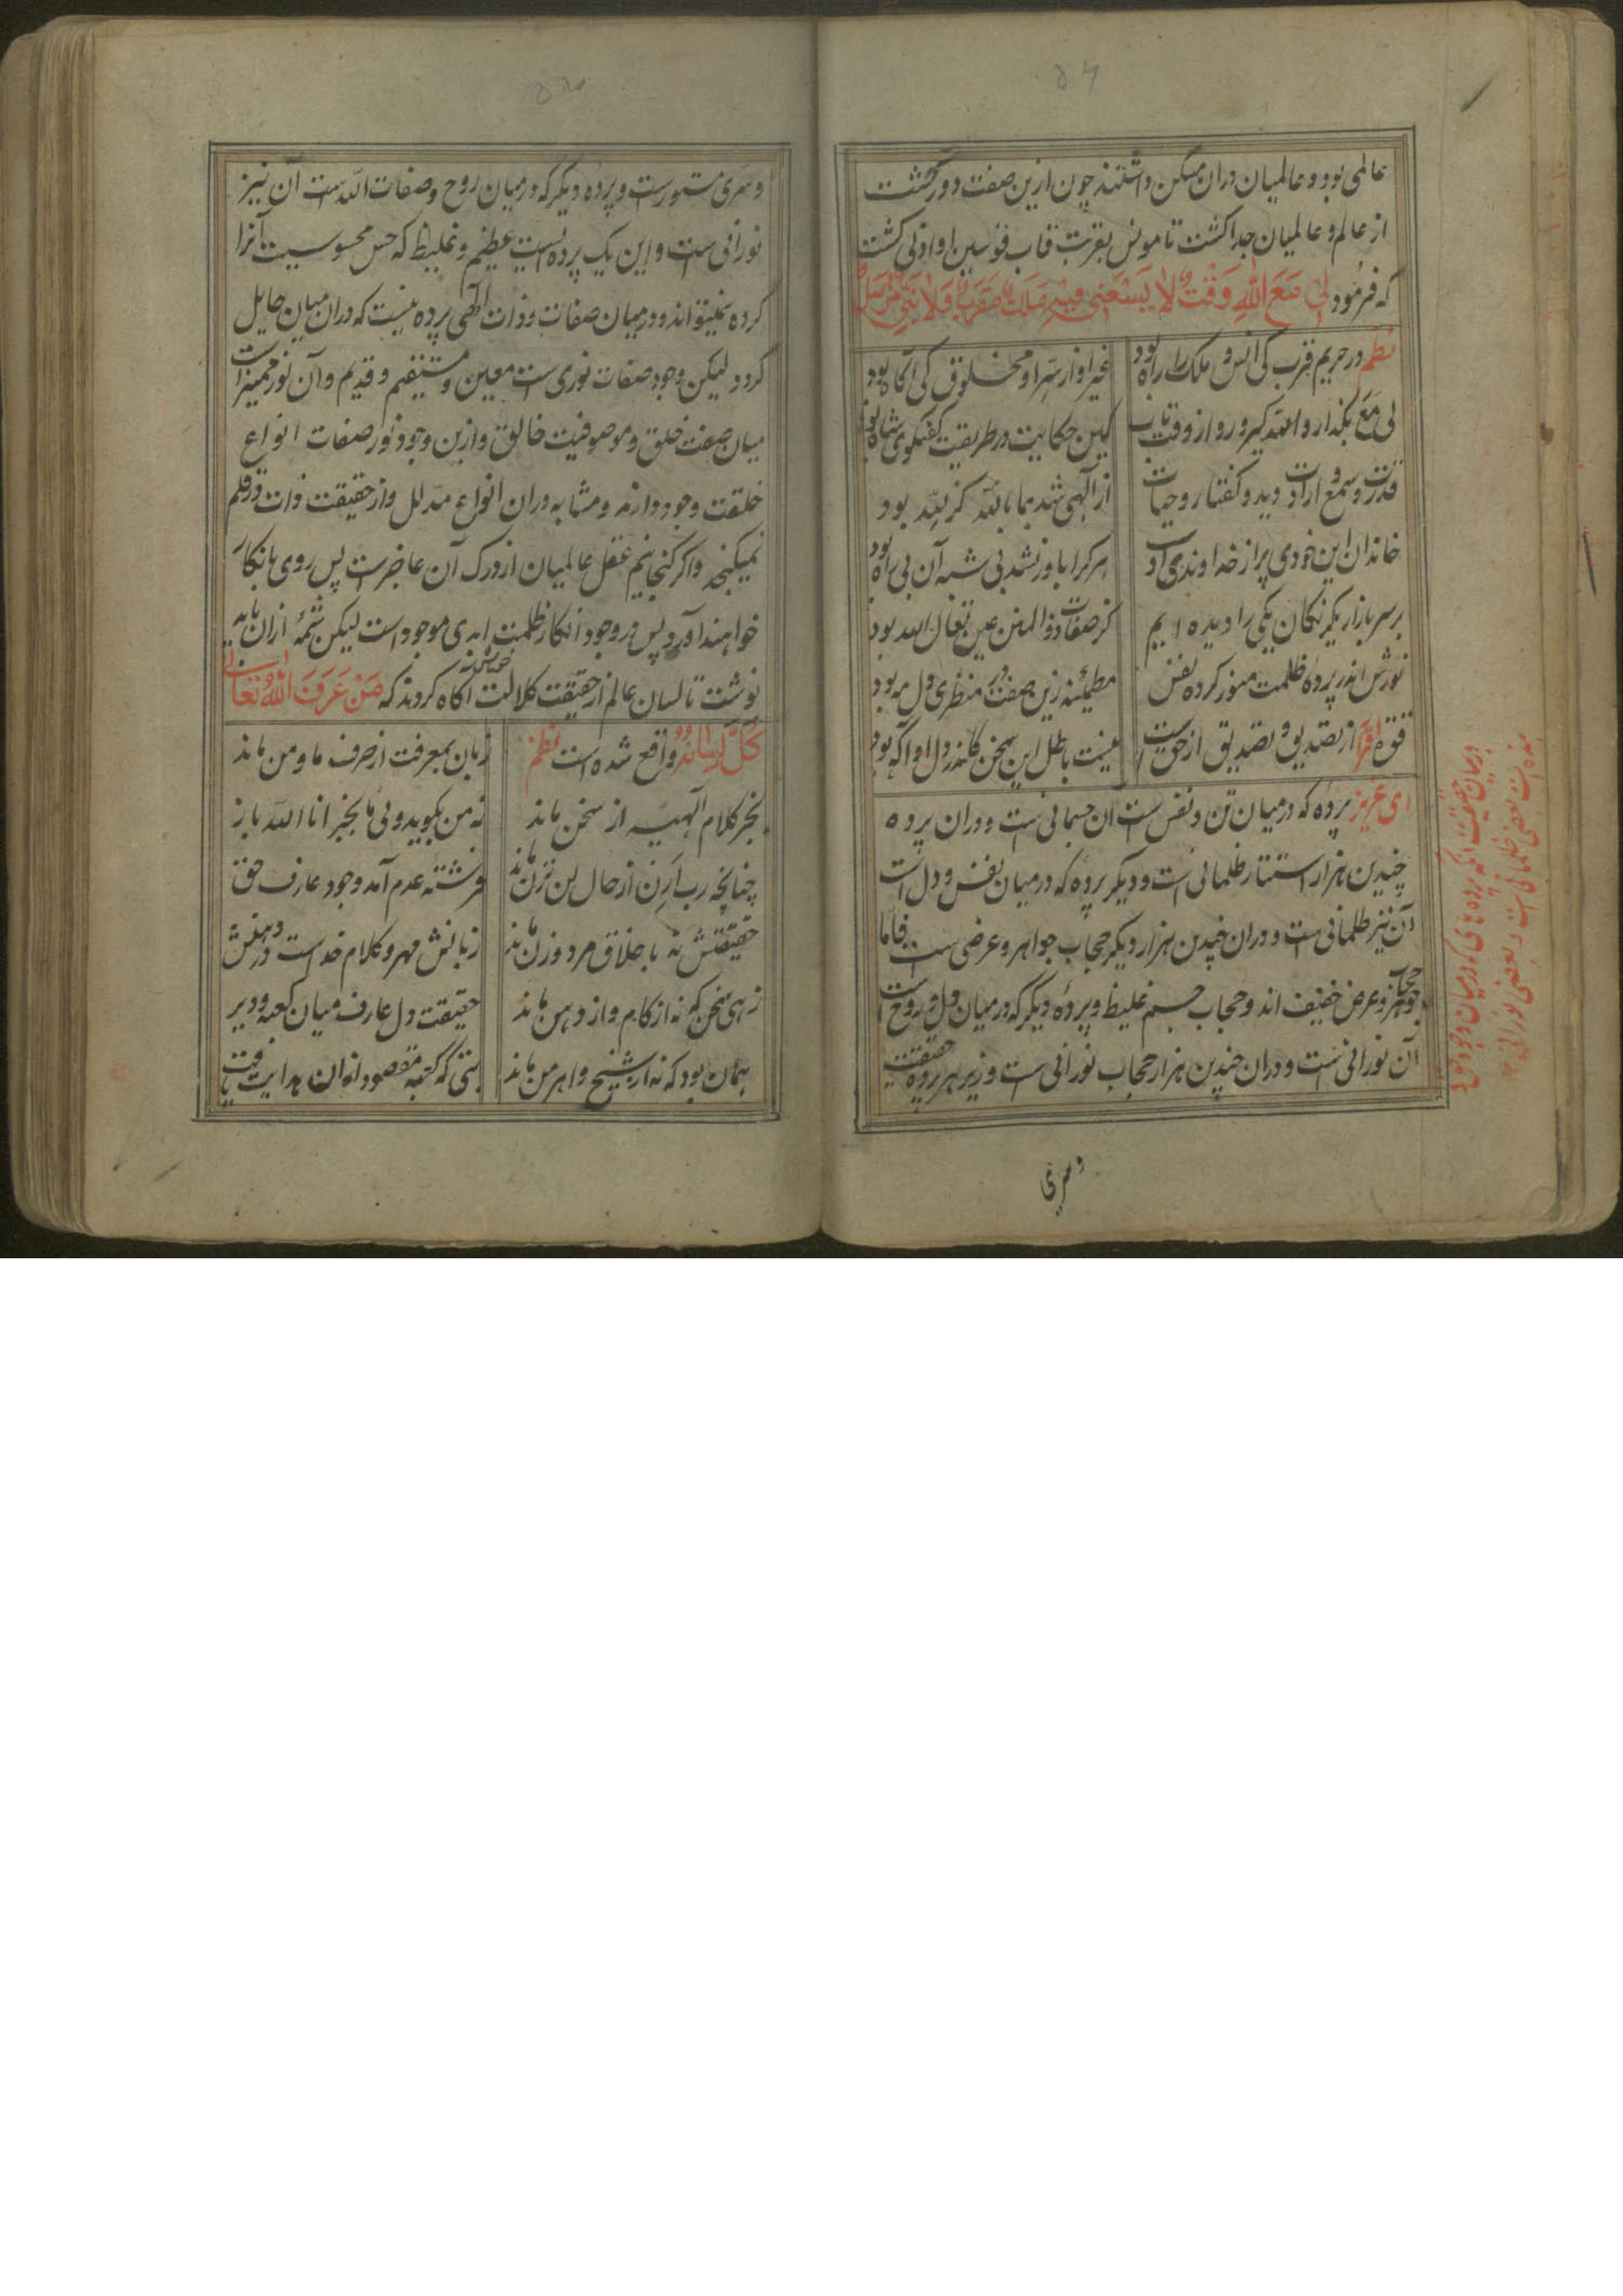 ۵۶
عالمی بود و عالمیان دران مسکن داشتند چون ازین صفت دور گشت
از عالم و عالمیان جدا گشت تا مونس بقربت قاب قوسین او ادنی گشت
که فرمود لِی مَعَ اللهِ وَقْتٌ لَا یَسَعُنِی فِیْهِ مَلَكٌ مُقَرَّبٌ وَلَا نَبِیٌّ مُرْسَلٌ
نظم در حریم قرب کی انس و ملک را راه بود
غیر او از سر او مخلوق کی آگاه بود
لی مع بگذار و الله گیر و رو از وقت تاب
کین حکایت در طریقت گفتگوی شاه بود
قدرت و سمع ارادت دید و گفتار و حیات
از آلهی شد بما بالله کز لله بود
خاندان این خودی پر از خداوندی او
هر کرا باور نشد بی شبه آن بی راه بود
بر سر بازار یکرنگان یکی را دیده ایم
کز صفات ذوالمنن عین تعال الله بود
نورش اندر پرده ظلمت منور کرده نفس
مطمئنه زین صفت در منظری دل مه بود
قوه اقرا از تصدیق و تصدیق از حق است
نیست باطل این سخن کاندر دل اواگه بود
ای عزیز پرده که درمیان تن و نفس ست ان جسمانی ست و دران پرده
چندین هزار استتار ظلمانی است و دیگر پرده که درمیان نفس و دل است
آن نیز ظلمانی ست و دران چندین هزار دیگر حجاب جواهر و عرضی ست فاما
حجاب جوهر و عرض خفیف اند و حجاب جسم غلیظ و پرده دیگر که درمیان دل و روح است
آن نورانی ست و دران چندین هزار حجاب نورانی ست و زیر هر پرده حقیقت
وسری
درمیان حقیقت آنکه پرده های که درمیان وجود حق و
بنده است بعضی ظلمانی است و بعضی نورانی
وسری مستورست و پرده دیگر که درمیان روح و صفات الله ست آن نیز
نورانی ست و این یک پرده ایست عظیم و غلیظ که حس محسوسیت آنرا
کرده نمیتواند و درمیان صفات و ذات آلهی پرده نیست که دران میان حایل
گردد لیکن وجود صفات نوری ست معین و مستقیم و قدیم و آن نور ممیزات
میان صفت خلق و موصوفیت خالق و ازین وجود نور صفات انواع
خلقت وجود دارند و مشابه دران انواع مدلل و از حقیقت ذات در قلم
نمیگنجد و اگر گنجانیم عقل عالمیان از درک آن عاجزست پس روی بانکار
خواهند آورد پس در وجود انکار ظلمت ابدی موجود است لیکن شمه ازان باید
نوشت تا لسان عالم از حقیقت کلالت آگاه گردند که مَنْ عَرَفَ اللهَ تَعَالٰی
كَلَّ لِسَانُهُ واقع شده است نظم
زبان بمعرفت از حرف ما و من ماند
بجز کلام آلهیه از سخن ماند
نه من بگوید و نی ما بجز انا الله باز
چنانچه رب ارن از حال لن ترن ماند
فرشته عدم آمد وجود عارف حق
حقیقتش نه با خلاق مرد و زن ماند
زبانش مهر و کلام خداست در دهنش
زهی سخن که نه از کام و از دهن ماند
حقیقت دل عارف میان کعبه و دیر
همان بود که نه از شیخ و اهرمن ماند
بتی که کعبه مقصود ازان هدایت یافت